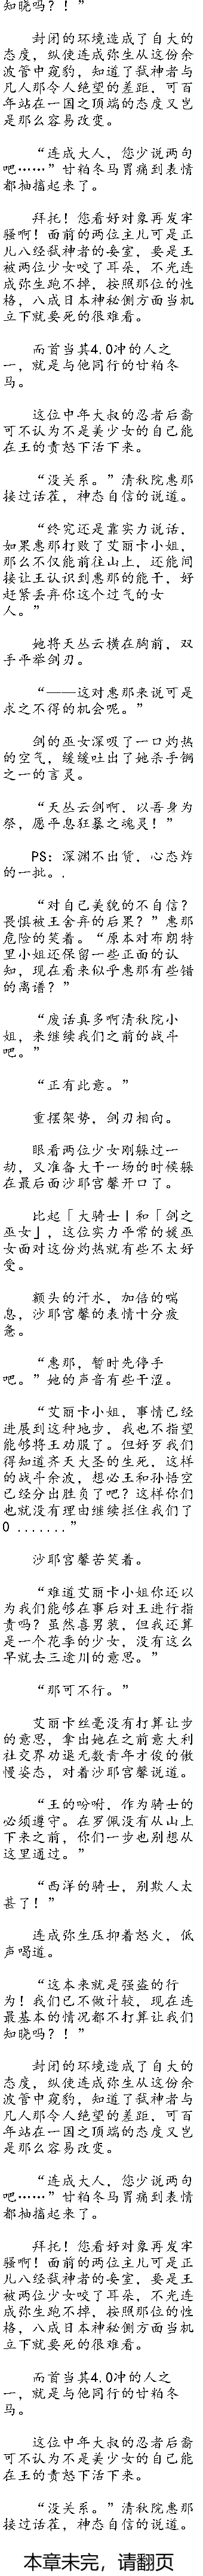 知晓吗？！”
封闭的环境造成了自大的
态度，纵使连成弥生从这份余
波管中窥豹，知道了弑神者与
凡人那令人绝望的差距，可百
年站在一国之顶端的态度又岂
是那么容易改变。
“连成大人，您少说两句
吧……”甘粕冬马胃痛到表情
都抽搐起来了。
拜托！您看好对象再发牢
骚啊！面前的两位主儿可是正
儿八经弑神者的妾室，要是王
被两位少女咬了耳朵，不光连
成弥生跑不掉，按照那位的性
格，八成日本神秘侧方面当机
立下就要死的很难看。
而首当其4.0冲的人之
一，就是与他同行的甘粕冬
马。
这位中年大叔的忍者后裔
可不认为不是美少女的自己能
在王的责怒下活下来。
“没关系。”清秋院惠那
接过话茬，神态自信的说道。
“终究还是靠实力说话，
如果惠那打败了艾丽卡小姐，
那么不仅能前往山上，还能间
接让王认识到惠那的能干，好
赶紧丢弃你这个过气的女
人。”
她将天丛云横在胸前，双
手平举剑刃。
“——这对惠那来说可是
求之不得的机会呢。”
剑的巫女深吸了一口灼热
的空气，缓缓吐出了她杀手锏
之一的言灵。
“天丛云剑啊，以吾身为
祭，愿平息狂暴之魂灵！”
PS：深渊不出货，心态炸
的一批。.
“对自己美貌的不自信？
畏惧被王舍弃的后果？”惠那
危险的笑着。“原本对布朗特
里小姐还保留一些正面的认
知，现在看来似乎惠那有些错
的离谱？”
“废话真多啊清秋院小
姐，来继续我们之前的战斗
吧。”
“正有此意。”
重摆架势，剑刃相向。
眼看两位少女刚躲过一
劫，又准备大干一场的时候躲
在最后面沙耶宫馨开口了。
比起「大骑士」和「剑之
巫女」，这位实力平常的媛巫
女面对这份灼热就有些不太好
受。
额头的汗水，加倍的喘
息，沙耶宫馨的表情十分疲
惫。
“惠那，暂时先停手
吧。”她的声音有些干涩。
“艾丽卡小姐，事情已经
进展到这种地步，我也不指望
能够将王劝服了。但好歹我们
得知道齐天大圣的生死，这样
的战斗余波，想必王和孙悟空
已经分出胜负了吧？这样你们
也就没有理由继续拦住我们了
0 .......”
沙耶宫馨苦笑着。
“难道艾丽卡小姐你还以
为我们能够在事后对王进行指
责吗？虽然喜男装，但我还算
是一个花季的少女，没有这么
早就去三途川的意思。”
“那可不行。”
艾丽卡丝毫没有打算让步
的意思，拿出她在之前意大利
社交界劝退无数青年才俊的傲
慢姿态，对着沙耶宫馨说道。
“王的吩咐，作为骑士的
必须遵守。在罗佩没有从山上
下来之前，你们一步也别想从
这里通过。”
“西洋的骑士，别欺人太
甚了！”
连成弥生压抑着怒火，低
声喝道。
“这本来就是强盗的行
为！我们已不做计较，现在连
最基本的情况都不打算让我们
知晓吗？！”
封闭的环境造成了自大的
态度，纵使连成弥生从这份余
波管中窥豹，知道了弑神者与
凡人那令人绝望的差距，可百
年站在一国之顶端的态度又岂
是那么容易改变。
“连成大人，您少说两句
吧……”甘粕冬马胃痛到表情
都抽搐起来了。
拜托！您看好对象再发牢
骚啊！面前的两位主儿可是正
儿八经弑神者的妾室，要是王
被两位少女咬了耳朵，不光连
成弥生跑不掉，按照那位的性
格，八成日本神秘侧方面当机
立下就要死的很难看。
而首当其4.0冲的人之
一，就是与他同行的甘粕冬
马。
这位中年大叔的忍者后裔
可不认为不是美少女的自己能
在王的责怒下活下来。
“没关系。”清秋院惠那
接过话茬，神态自信的说道。
本章未完，请翻页